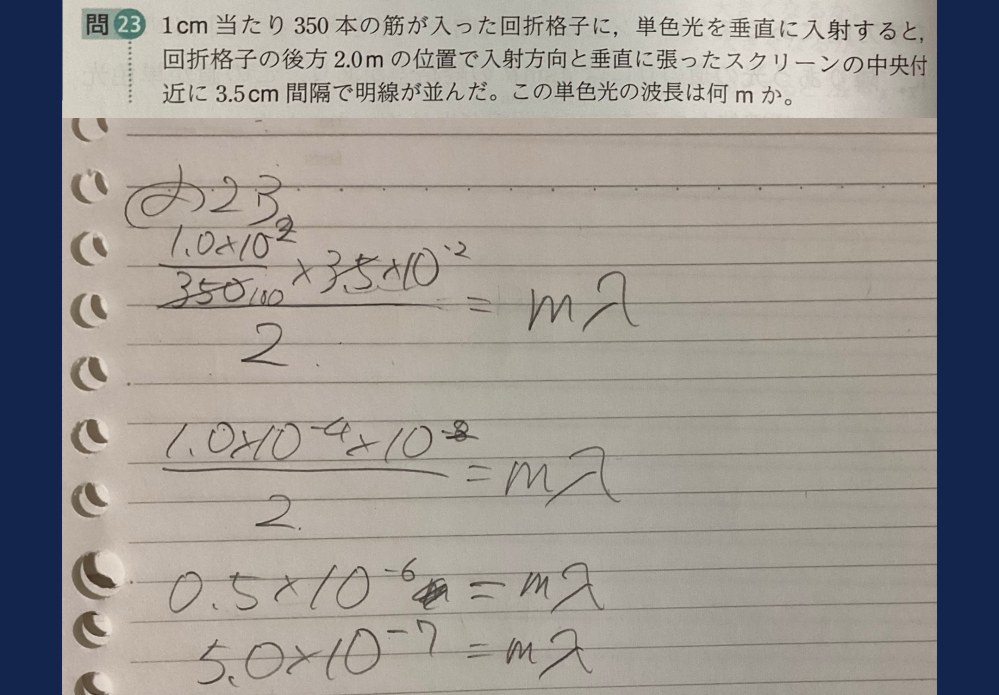 問23 1cm当たり350本の筋が入った回折格子に，単色光を垂直に入射すると，
回折格子の後方2.0mの位置で入射方向と垂直に張ったスクリーンの中央付
近に3.5cm間隔で明線が並んだ。この単色光の波長は何mか。
23
1.0×10⁻²
350 100 ×3.5×10⁻²
2 = mλ
1.0×10⁻⁴×10⁻²
2. = mλ
0.5×10⁻⁶ = mλ
5.0×10⁻⁷ = mλ